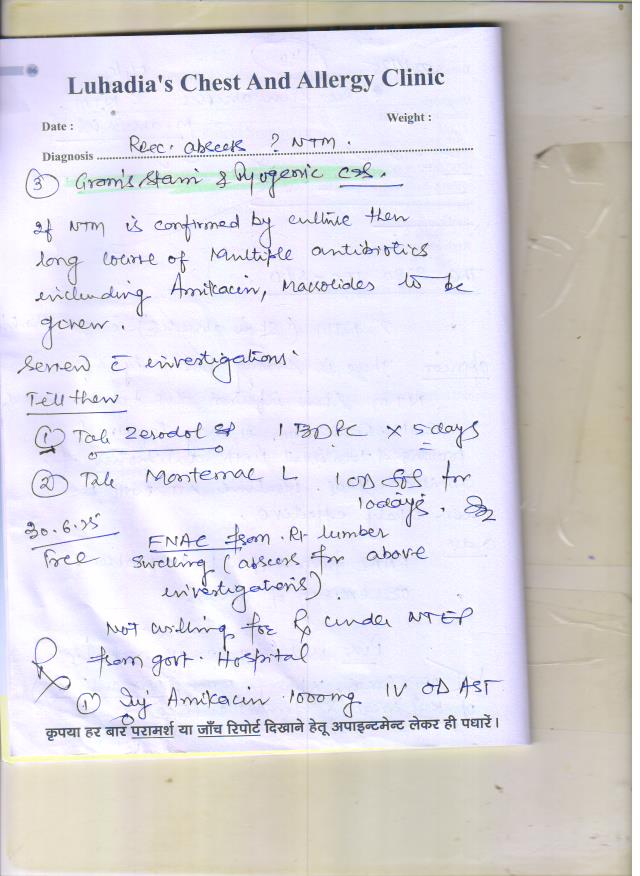 Luhadia's Chest And Allergy Clinic
Date :
Weight :
Diagnosis Recc. abscess ? NTM.
3 Gram's stain & Pyogenic c/s.
If NTM is confirmed by culture then
long course of multiple antibiotics
including Amikacin, Macrolides to be
given.
review c̄ investigations.
Till then
1 Tab Zerodol SP 1 BDPC x 5 days
2 Tab Montemac L. 1 OD SOS for
10 days.
30.6.25
Free
FNAC from Rt lumber
swelling (abscess for above
investigations)
Not willing for Rx under NTEP
from govt. Hospital
Rx
1 Inj Amikacin 1000mg IV OD AST
कृपया हर बार परामर्श या जाँच रिपोर्ट दिखाने हेतू अपाइन्टमेन्ट लेकर ही पधारें।